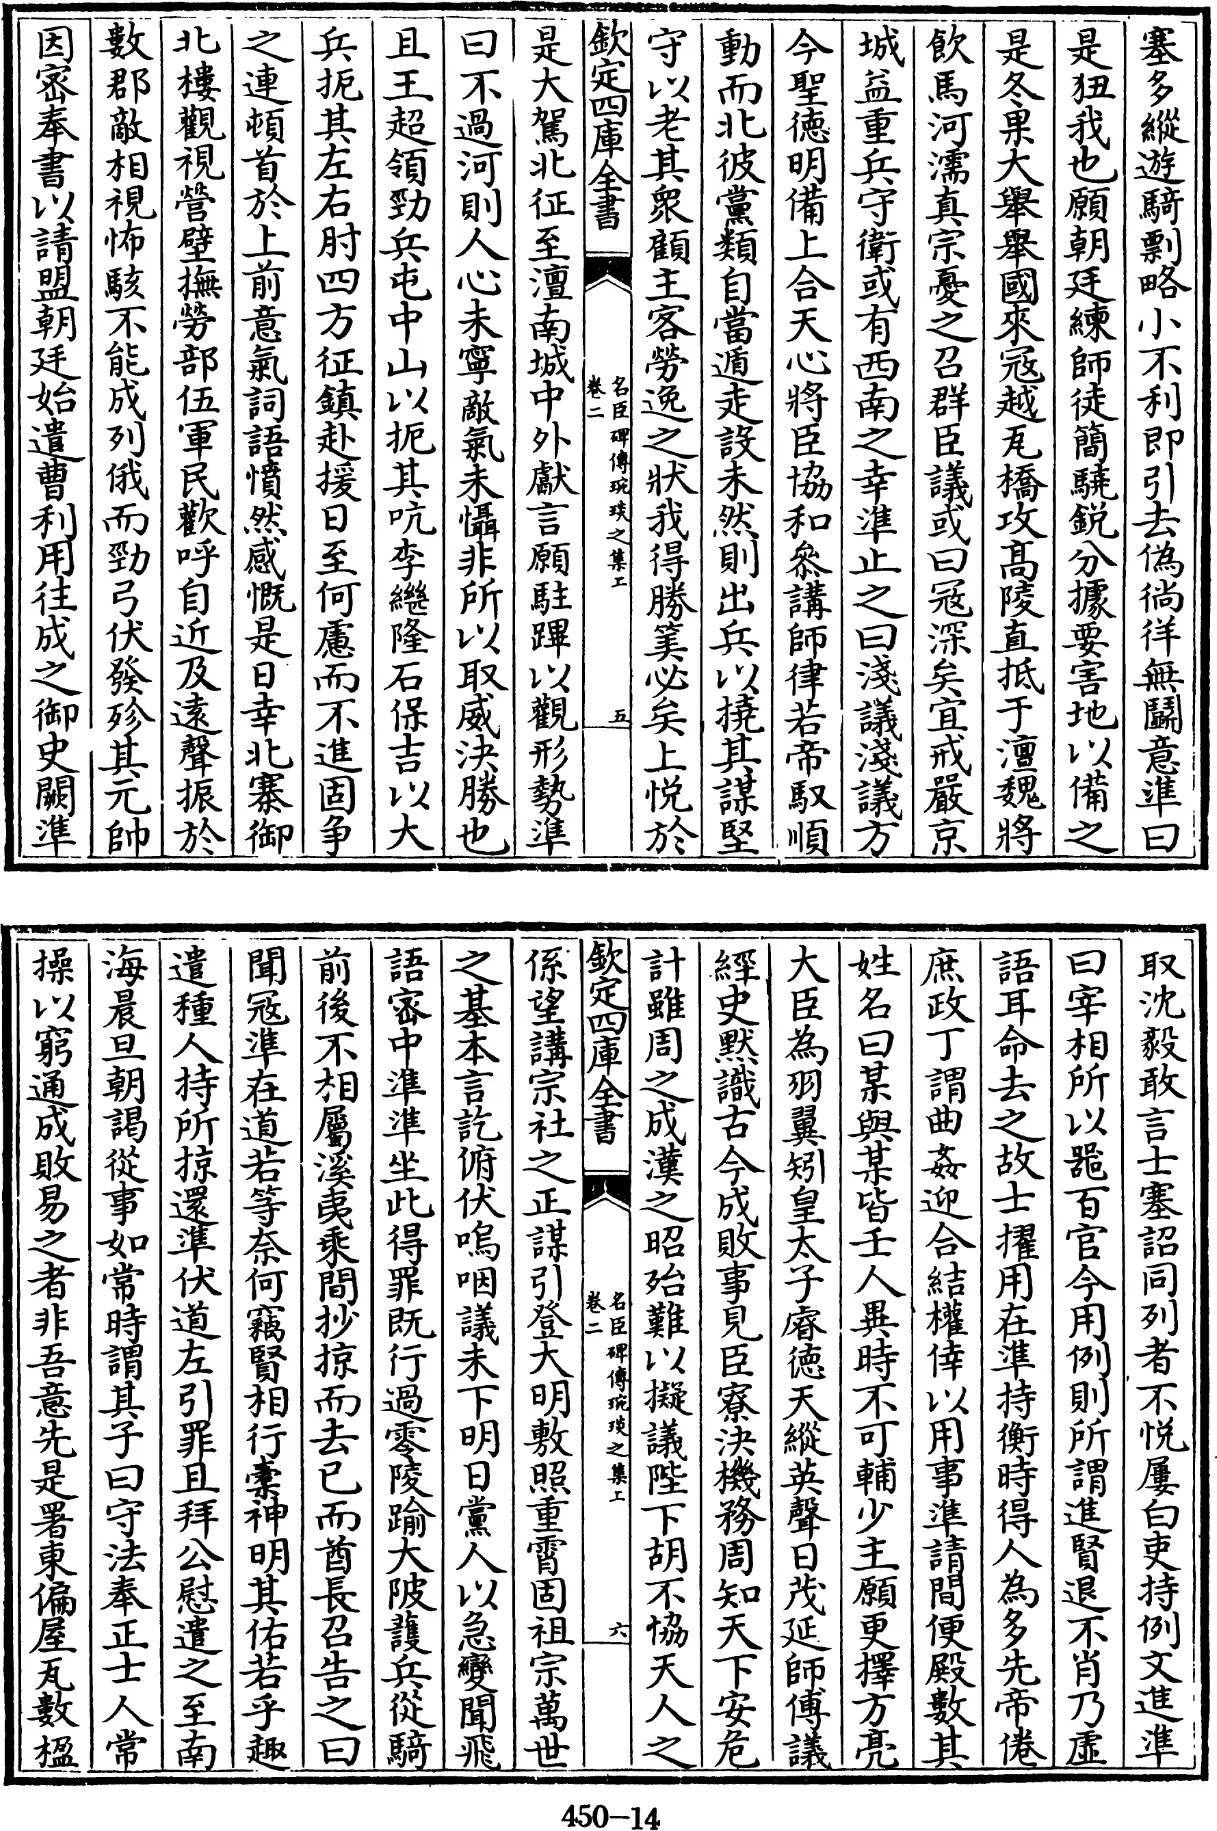 塞多縱遊騎剽略小不利即引去偽徜徉無鬭意準曰
是狃我也願朝廷練師徒簡驍銳分據要害地以備之
是冬果大舉舉國來冦越瓦橋攻髙陵直抵于澶魏將
飲馬河濡真宗憂之召群臣議或曰冦深矣宜戒嚴京
城益重兵守衛或有西南之幸準止之曰淺議淺議方
今聖德明備上合天心將臣協和叅講師律若帝馭順
動而北彼黨類自當遁走設未然則出兵以撓其謀堅
守以老其衆顧主客勞逸之狀我得勝筭必矣上悦於
欽定四庫全書
名臣碑傳琬琰之集上
卷二
五
是大駕北征至澶南城中外獻言願駐蹕以觀形勢準
曰不過河則人心未寧敵氣未懾非所以取威決勝也
且王超領勁兵屯中山以扼其吭李繼隆石保吉以大
兵扼其左右肘四方征鎮赴援日至何慮而不進固争
之連頓首於上前意氣詞語憤然感慨是日幸北寨御
北樓觀視營壁撫勞部伍軍民歡呼自近及遠聲振於
數郡敵相視怖駭不能成列俄而勁弓伏發殄其元帥
因密奉書以請盟朝廷始遣曹利用往成之御史闕準
取沈毅敢言士塞詔同列者不悦屢白吏持例文進準
曰宰相所以噐百官今用例則所謂進賢退不肖乃虛
語耳命去之故士擢用在準持衡時得人為多先帝倦
庶政丁謂曲姦迎合結權倖以用事準請間便殿數其
姓名曰某與某皆壬人異時不可輔少主願更擇方亮
大臣為羽翼矧皇太子睿德天縱英聲日茂延師傅議
經史黙識古今成敗事見臣寮決機務周知天下安危
計雖周之成漢之昭殆難以擬議陛下胡不協天人之
欽定四庫全書
名臣碑傳琬琰之集上
卷二
六
係望講宗社之正謀引登大明敷照重霄固祖宗萬世
之基本言訖俯伏嗚咽議未下明日黨人以急變聞飛
語宻中準準坐此得罪既行過零陵踰大陂護兵從騎
前後不相屬溪夷乘間抄掠而去已而酋長召告之曰
聞冦準在道若等奈何竊賢相行橐神明其佑若乎趣
遣種人持所掠還準伏道左引罪且拜公慰遣之至南
海晨旦朝謁從事如常時謂其子曰守法奉正士人常
操以窮通成敗易之者非吾意先是署東偏屋瓦數楹
450-14